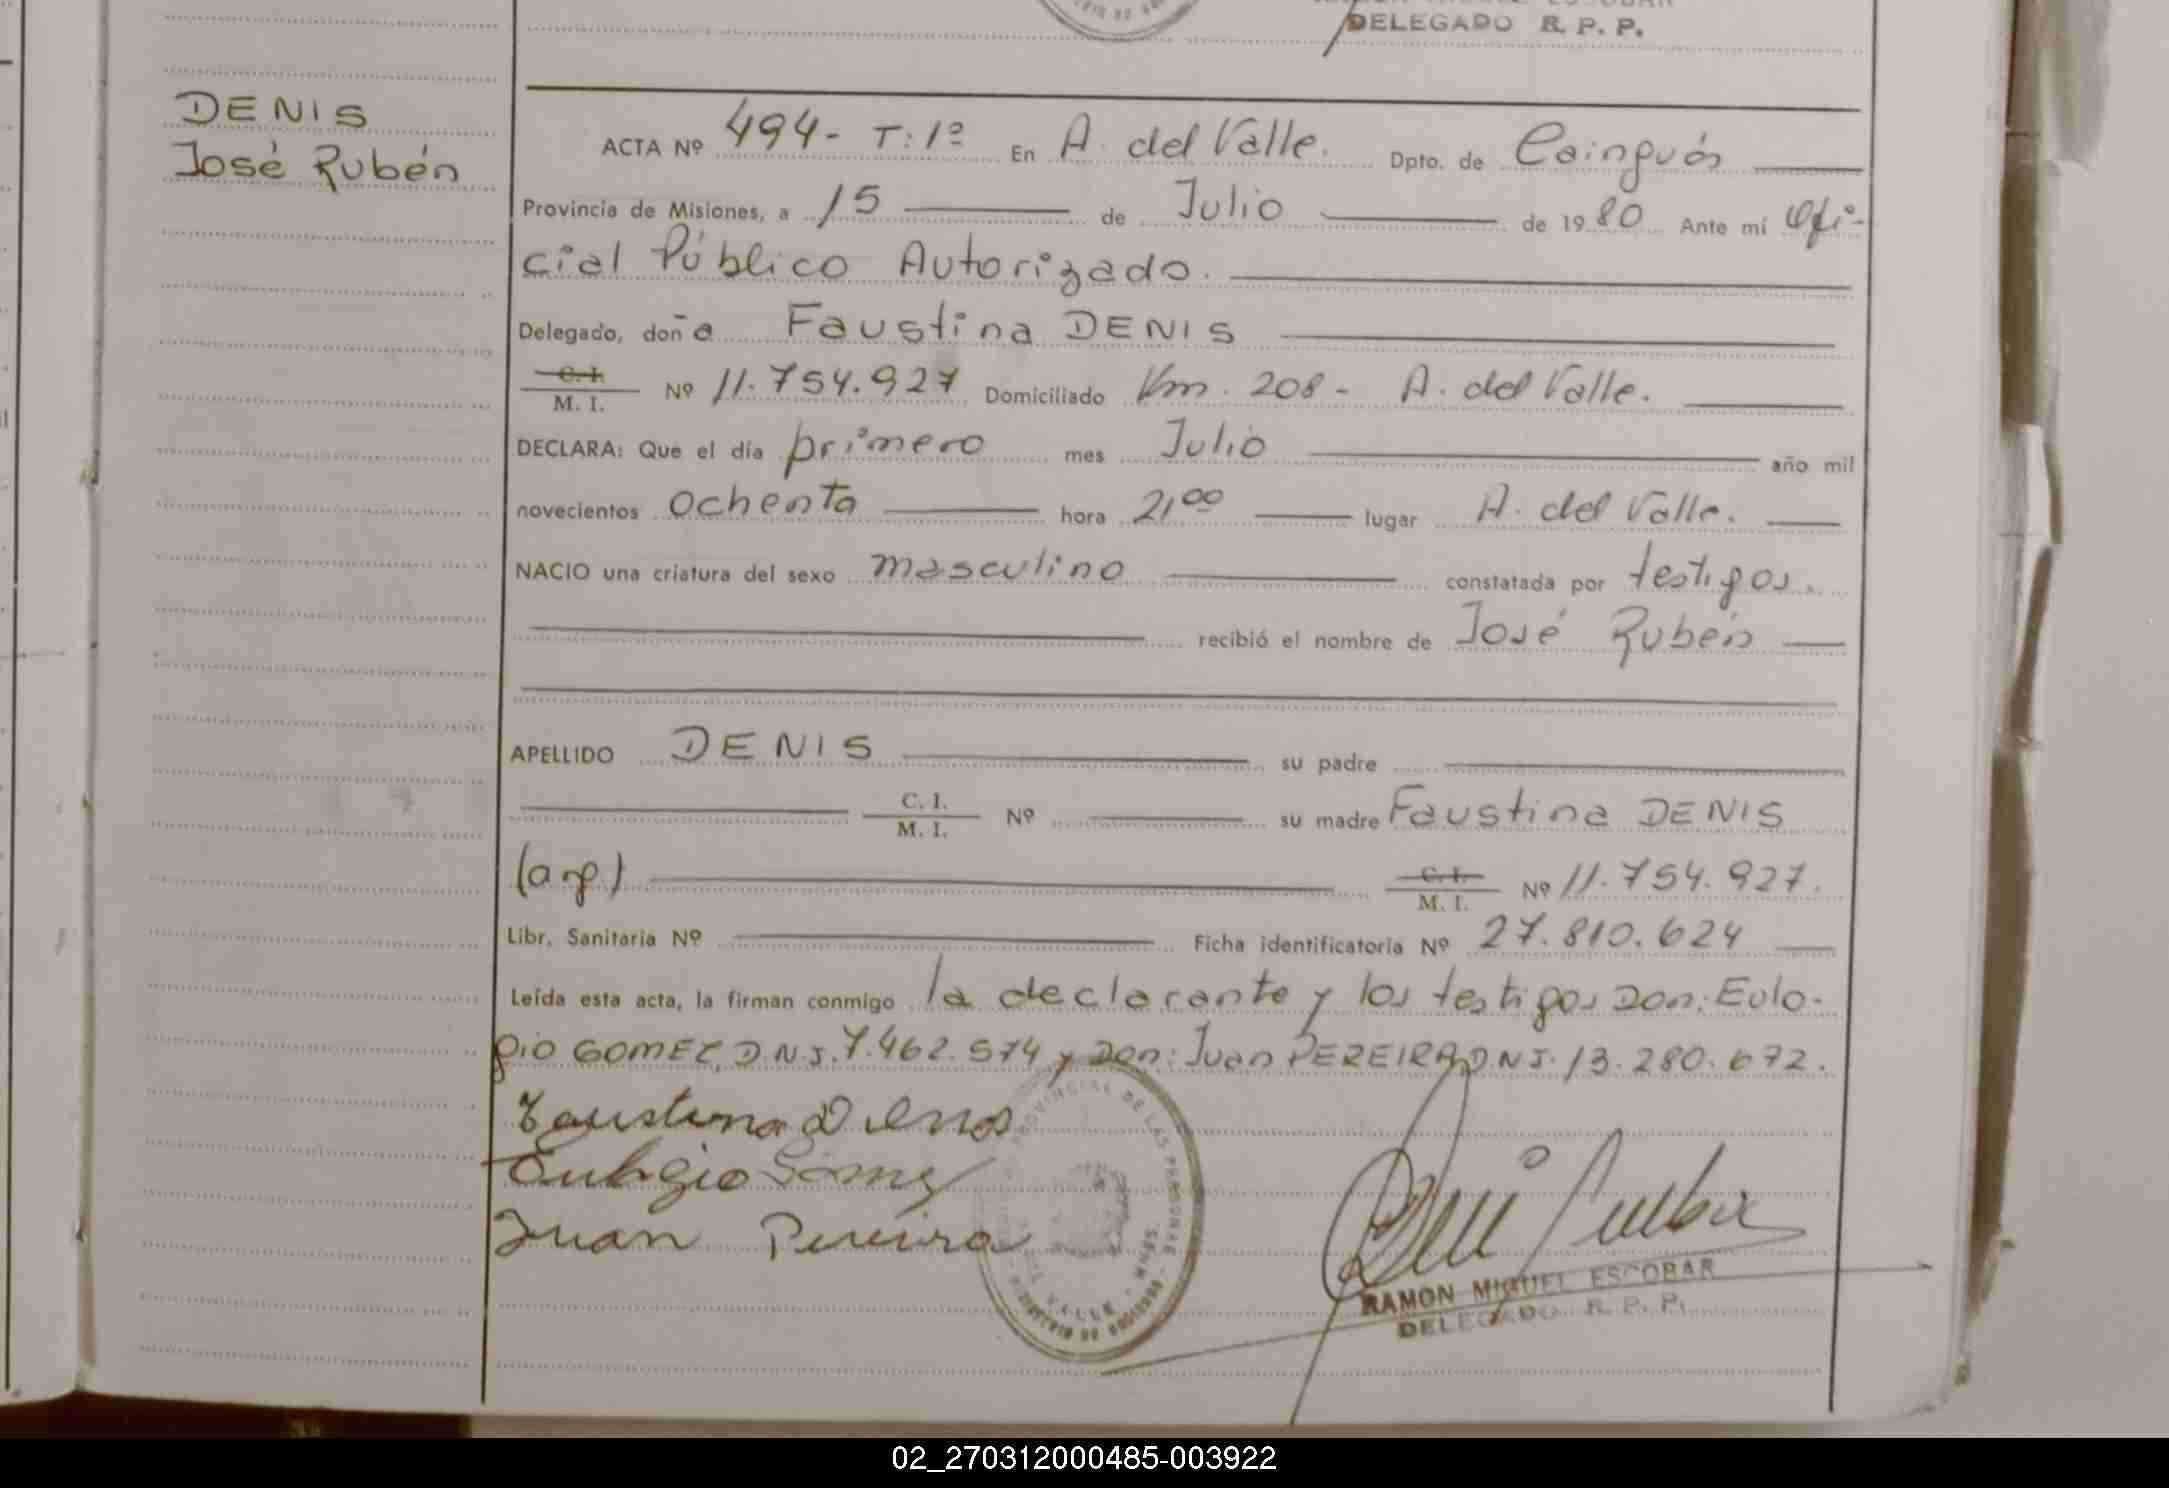 DELEGADO R. P. P.
DENIS
José Rubén
ACTA Nº 494- T: 1º En A. del Valle. Dpto. de Cainguás
Provincia de Misiones, a 15 de Julio de 1980 Ante mí Ofi-
cial Público Autorizado.
Delegado, doña Faustina DENIS
C. I.
M. I. Nº 11.754.927 Domiciliado Km. 208 - A. del Valle.
DECLARA: Que el día primero mes Julio año mil
novecientos ochenta hora 21,00 lugar A. del Valle.
NACIO una criatura del sexo masculino constatada por testigos.
recibió el nombre de José Rubén
APELLIDO DENIS su padre
C. I.
M. I. Nº su madre Faustina DENIS
(arg) C. I.
M. I. Nº 11.754.927.
Libr. Sanitaria Nº Ficha identificatoria Nº 27.810.624
Leída esta acta, la firman conmigo la declarante y los testigos Don: Eulo-
gio GOMEZ, D.N.I. 7.462.574 y Don: Juan PEREIRA D.N.I. 13.280.672.
Faustina Denis
Eulogio Gómez
Juan Pereira
PROVINCIAL DE LAS PERSONAS
VALLE - MNES.
RAMON MIGUEL ESCOBAR
DELEGADO R. P. P.
02_270312000485-003922